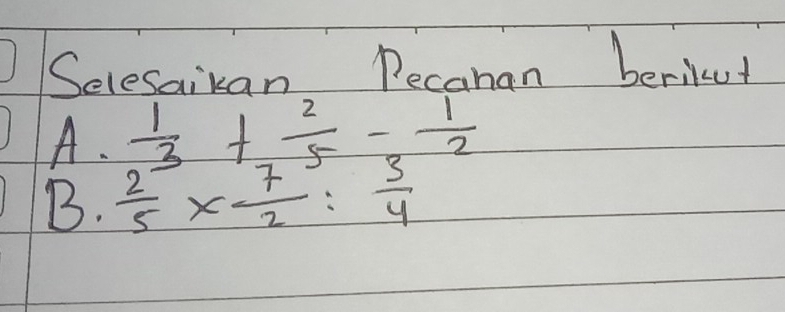 Selesaikan Pecahan berikut
A. 1/3 + 2/5 - 1/2
B. 2/5 × 7/2 : 3/4